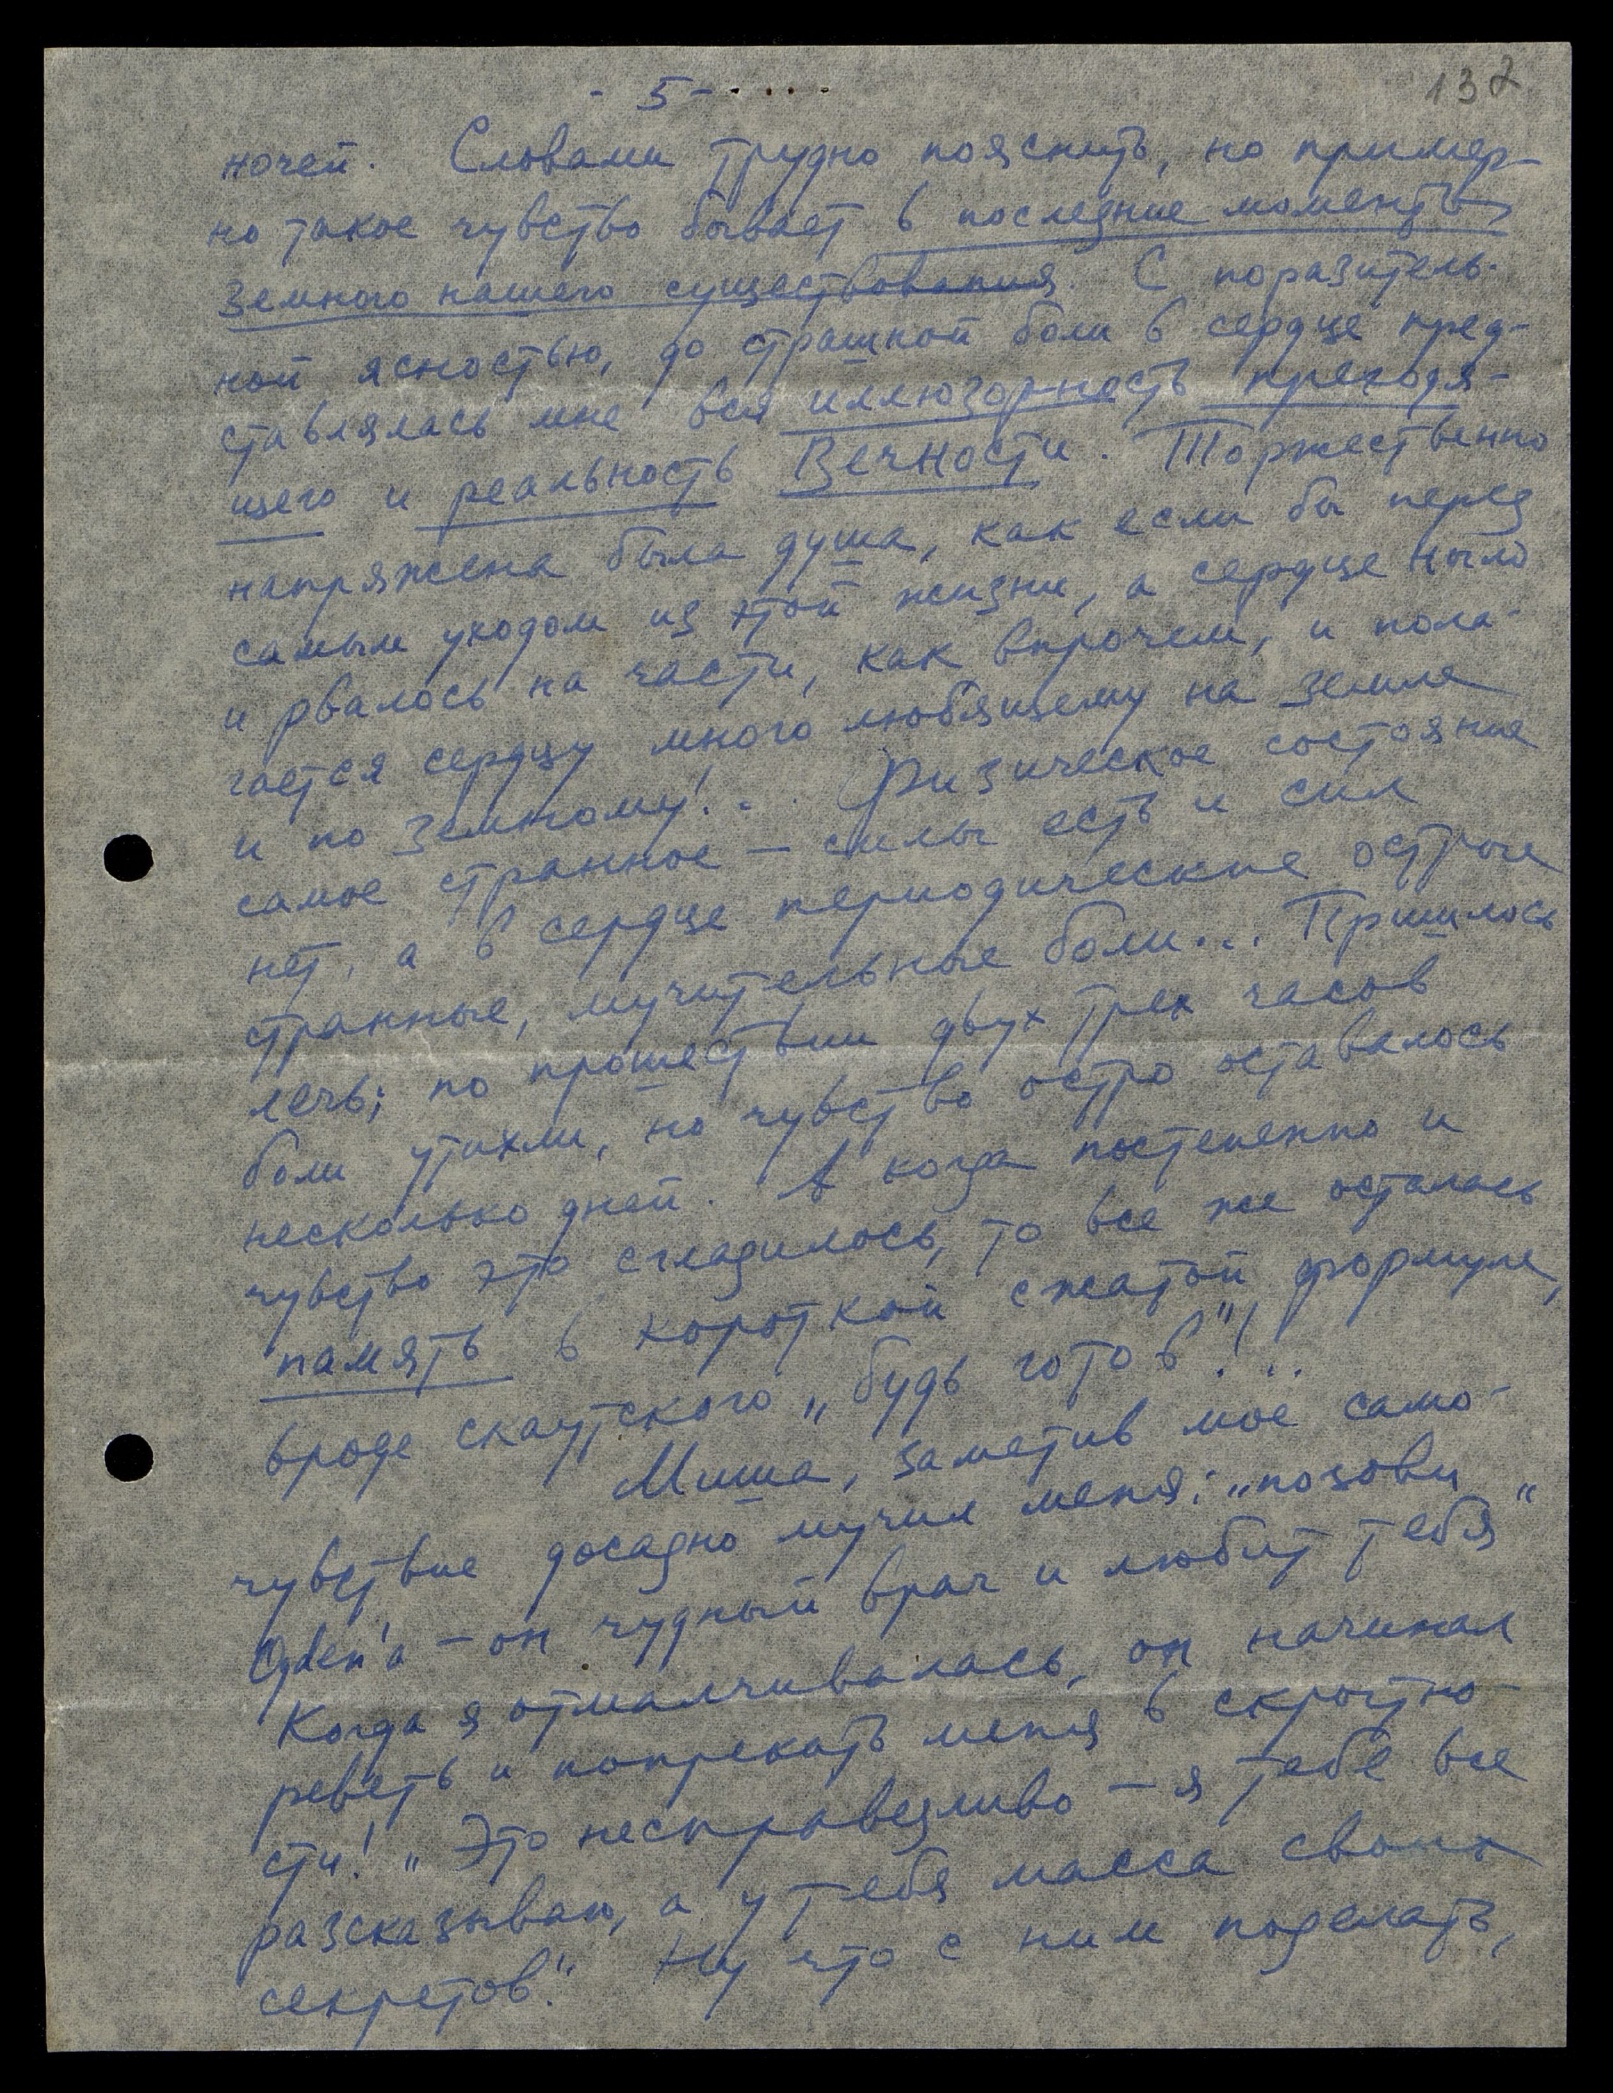 - 5 -
132
ночей. Словами трудно пояснить, но пример-
но такое чувство бывает в последние моменты
земного нашего существования. С поразитель-
ной ясностью, до страшной боли в сердце пред-
ставлялась мне вся иллюзорность преходя-
щего и реальность Вечности. Торжественно
напряжена была душа, как если бы перед
самым уходом из этой жизни, а сердце ныло
и рвалось на части, как впрочем, и пола-
гается сердцу много любящему на земле
и по земному!.. Физическое состояние
самое странное — силы есть и сил
нет, а в сердце периодические острые
странные, мучительные боли... Пришлось
лечь; по прошествии двух трех часов
боли утихли, но чувство остро оставалось
несколько дней. А когда постепенно и
чувство это сгладилось, то все же осталась
память в короткой сжатой формуле,
вроде скаутского „будь готов"!..
Миша, заметив мое само-
чувствие досадно мучил меня: „позови
Ogden'а — он чудный врач и любит тебя"
Когда я отмалчивалась, он начинал
реветь и попрекать меня в скрытно-
сти! „Это несправедливо — я тебе все
разсказываю, а у тебя масса своих
секретов." Ну что с ним поделать,